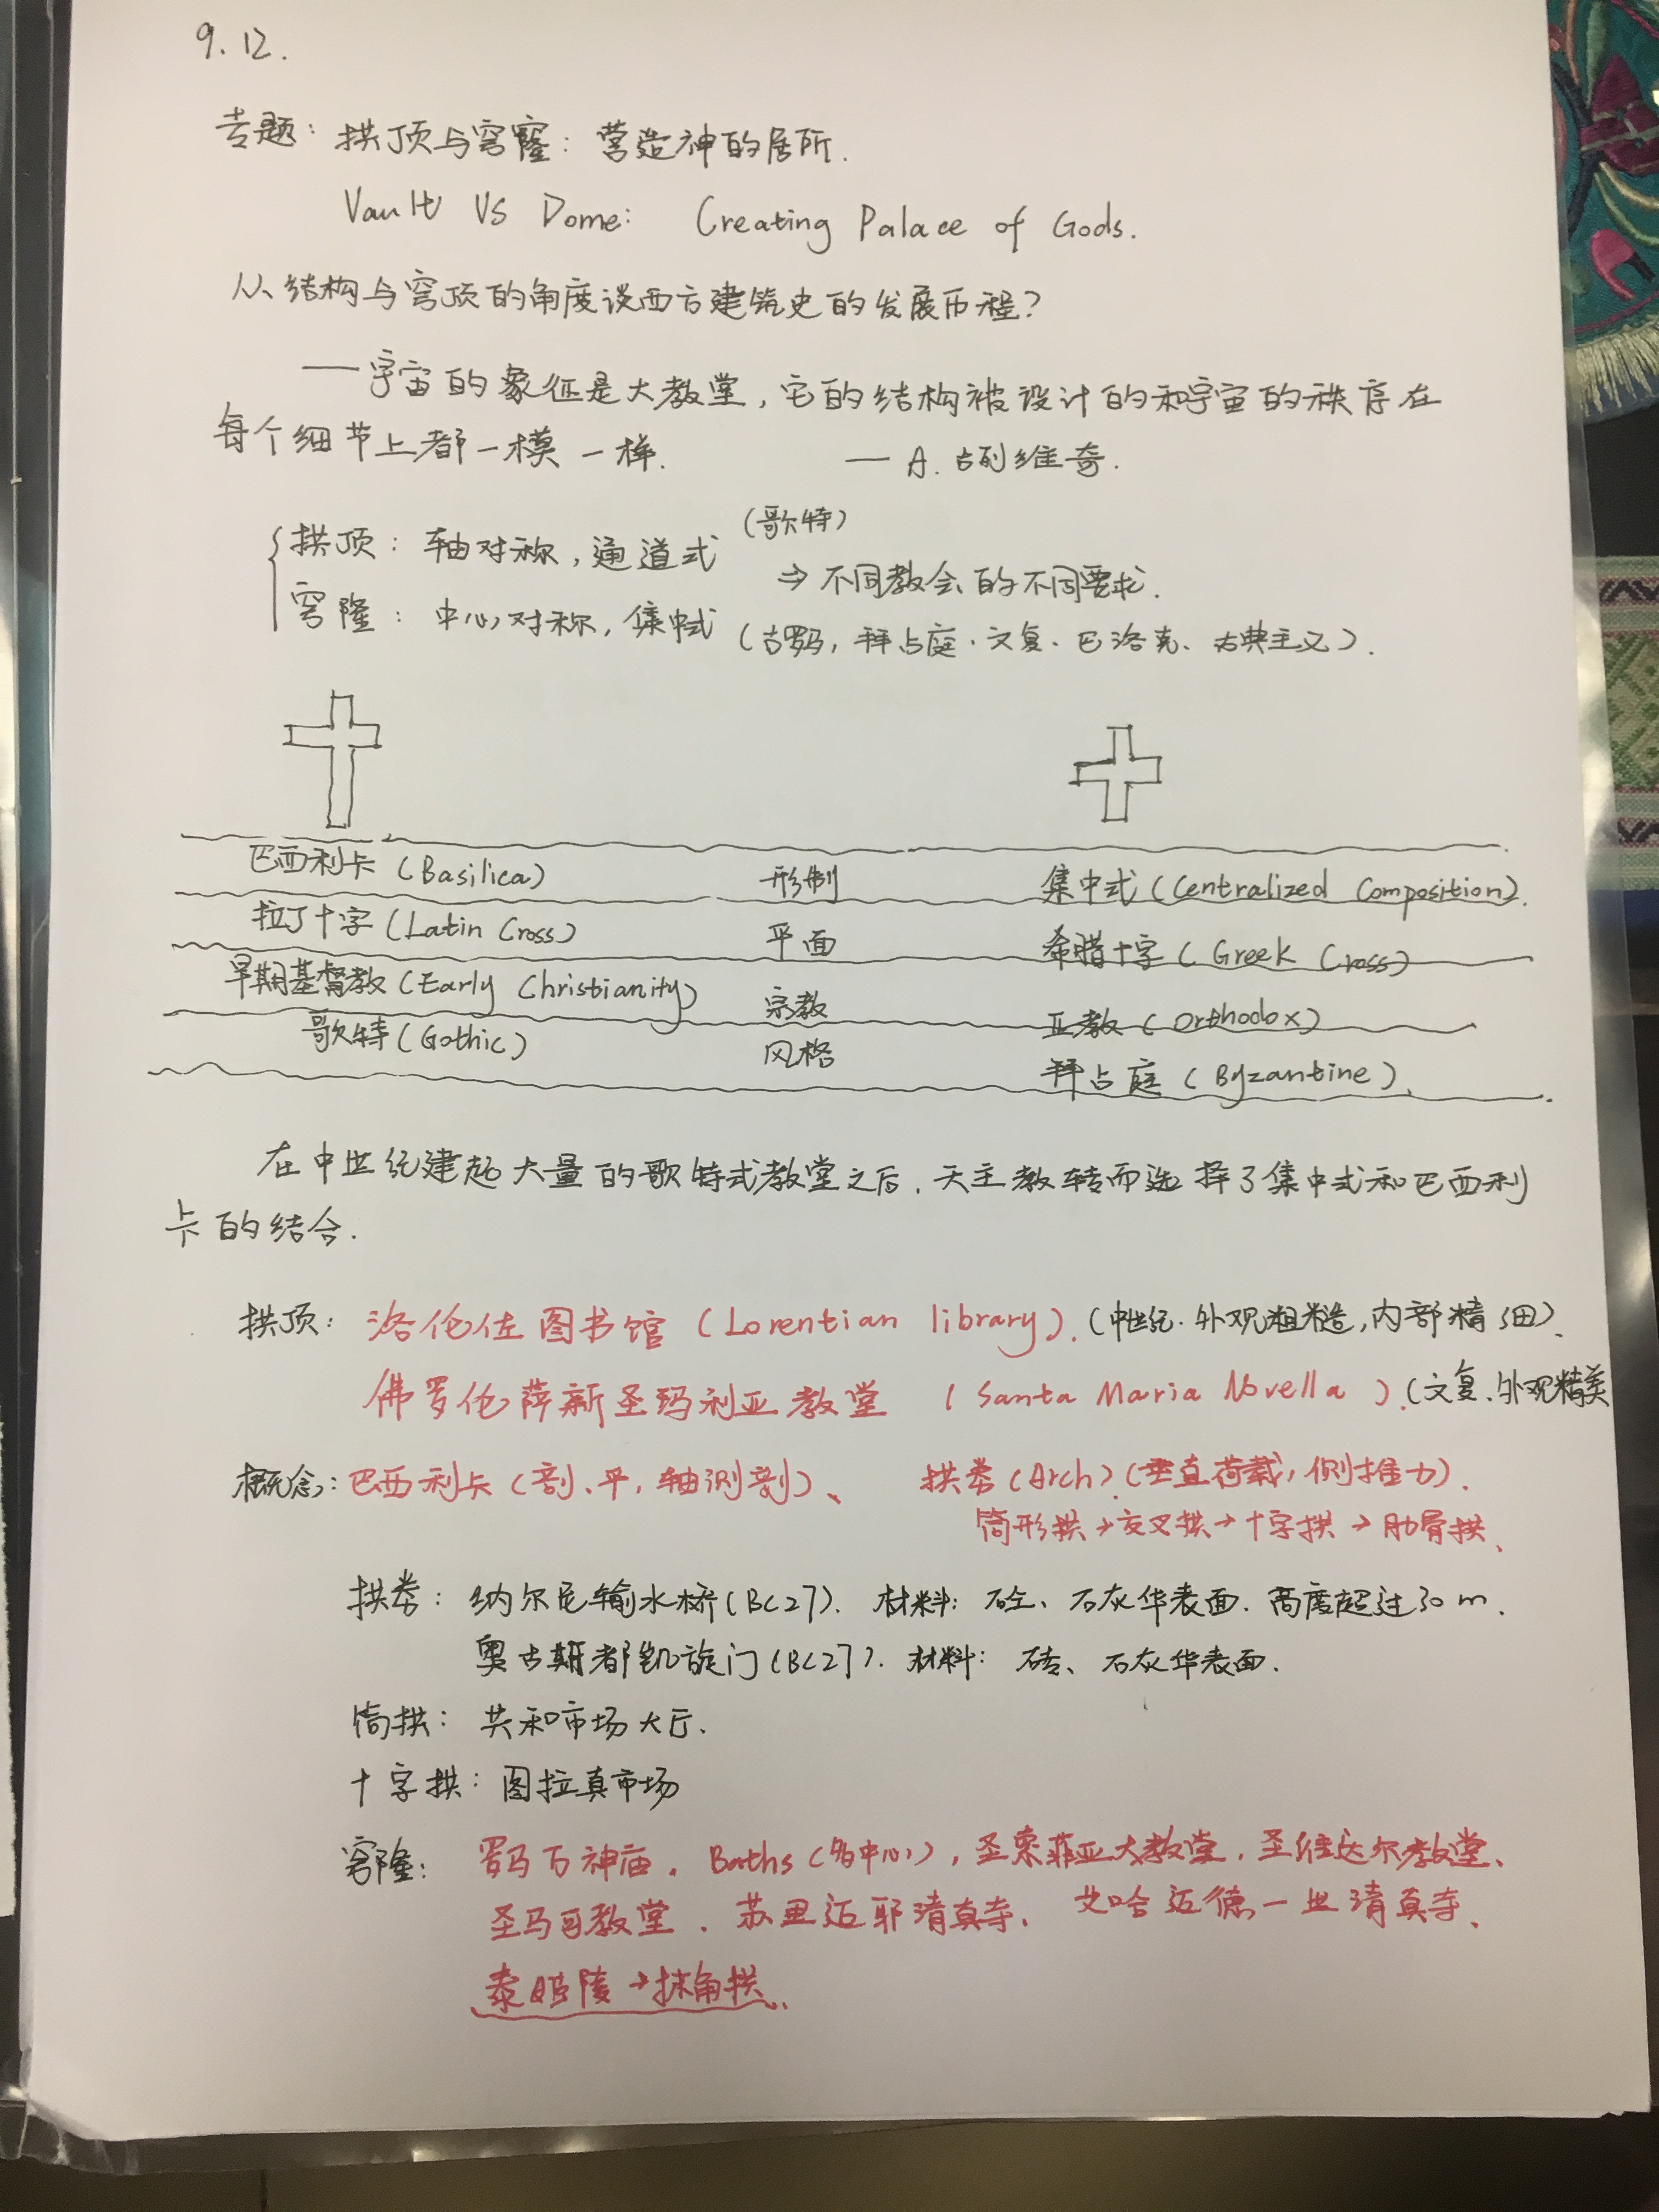 9.12.
专题：拱顶与穹窿：营造神的居所.
Vault VS Dome: Creating Palace of Gods.
从结构与穹顶的角度谈西方建筑史的发展历程？
——宇宙的象征是大教堂，它的结构被设计的和宇宙的秩序在
每个细节上都一模一样.
— A. 古列维奇.
拱顶：轴对称，通道式 (歌特)
⇒ 不同教会的不同要求.
穹隆：中心对称，集中式 (古罗马，拜占庭、文复、巴洛克、古典主义).
巴西利卡 (Basilica) 形制 集中式 (Centralized Composition).
拉丁十字 (Latin Cross) 平面 希腊十字 (Greek Cross)
早期基督教 (Early Christianity) 宗教 正教 (Orthodox)
歌特 (Gothic) 风格 拜占庭 (Byzantine).
在中世纪建起大量的歌特式教堂之后，天主教转而选择了集中式和巴西利
卡的结合.
拱顶：洛伦佐图书馆 (Lorentian library). (中世纪. 外观粗糙，内部精细).
佛罗伦萨新圣玛利亚教堂 (Santa Maria Novella). (文复、外观精美
概念：巴西利卡 (剖、平，轴测剖)、 拱券 (Arch) (垂直荷载，侧推力).
筒形拱→交叉拱→十字拱→肋骨拱、
拱券：纳尔尼输水桥 (BC27). 材料：砼、石灰华表面. 高度超过30m.
奥古斯都凯旋门 (BC27). 材料：砖、石灰华表面.
筒拱：共和市场大厅.
十字拱：图拉真市场
穹隆：罗马万神庙. Baths (多中心)，圣索菲亚大教堂，圣维达尔教堂、
圣马可教堂、苏里迈耶清真寺、艾哈迈德一世清真寺、
泰姬陵→抹角拱.